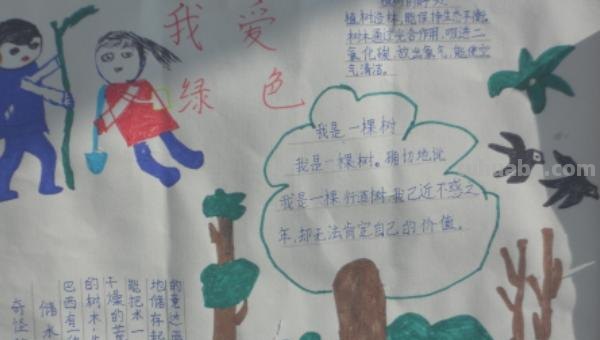 我爱
绿色
植树造林，能保持生态平衡。
树木通过光合作用，吸进二
氧化碳，放出氧气，能使空
气清洁。
我是一棵树
我是一棵树。确切地说
我是一棵行道树。我已近不惑之
年，却无法肯定自己的价值。
地储存起
能把水一
干燥的
的树木，
巴西有一
储水
奇怪